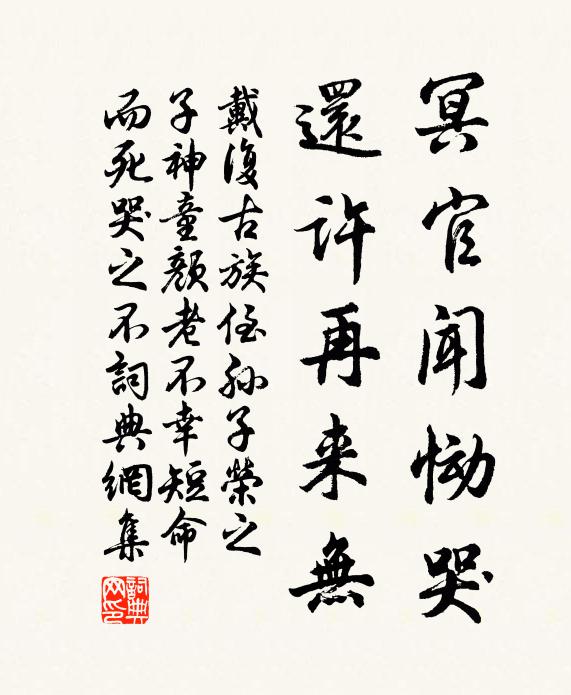 冥官聞慟哭
還許再来無
戴復古族侄孫子榮之
子神童顏老不幸短命
而死哭之不詞典網集
詞典网印